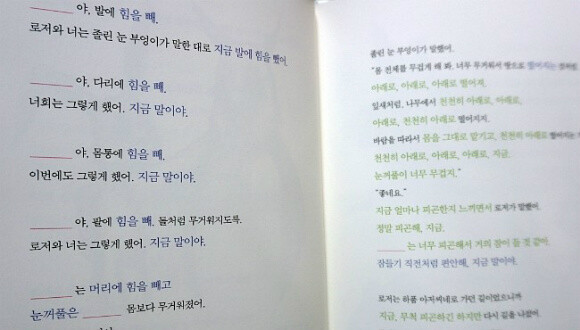 ______야, 발에 힘을 빼.
로저와 너는 졸린 눈 부엉이가 말한 대로 지금 발에 힘을 뺐어.
______야, 다리에 힘을 빼.
너희는 그렇게 했어. 지금 말이야.
______야, 몸통에 힘을 빼.
이번에도 그렇게 했어. 지금 말이야.
______야, 팔에 힘을 빼. 돌처럼 무거워지도록.
로저와 너는 그렇게 했어. 지금 말이야.
______는 머리에 힘을 빼고
눈꺼풀은 ______ 몸보다 무거워졌어.
졸린 눈 부엉이가 말했어.
"몸 전체를 무겁게 해 봐. 너무 무거워서 땅으로 떨어지는 것처럼
아래로, 아래로, 아래로 떨어져.
잎새처럼, 나무에서 천천히 아래로, 아래로,
아래로, 천천히 아래로 떨어지지.
바람을 따라서 몸을 그대로 맡기고, 천천히 아래로 떨어지는
천천히 아래로, 아래로, 아래로, 지금.
눈꺼풀이 너무 무겁지."
"좋네요."
지금 얼마나 피곤한지 느끼면서 로저가 말했어.
정말 피곤해, 지금.
______는 너무 피곤해서 거의 잠이 들 것 같아.
잠들기 직전처럼 편안해, 지금 말이야.
로저는 하품 아저씨네로 가던 길이었으니까
지금, 무척 피곤하긴 하지만 다시 길을 나섰어.